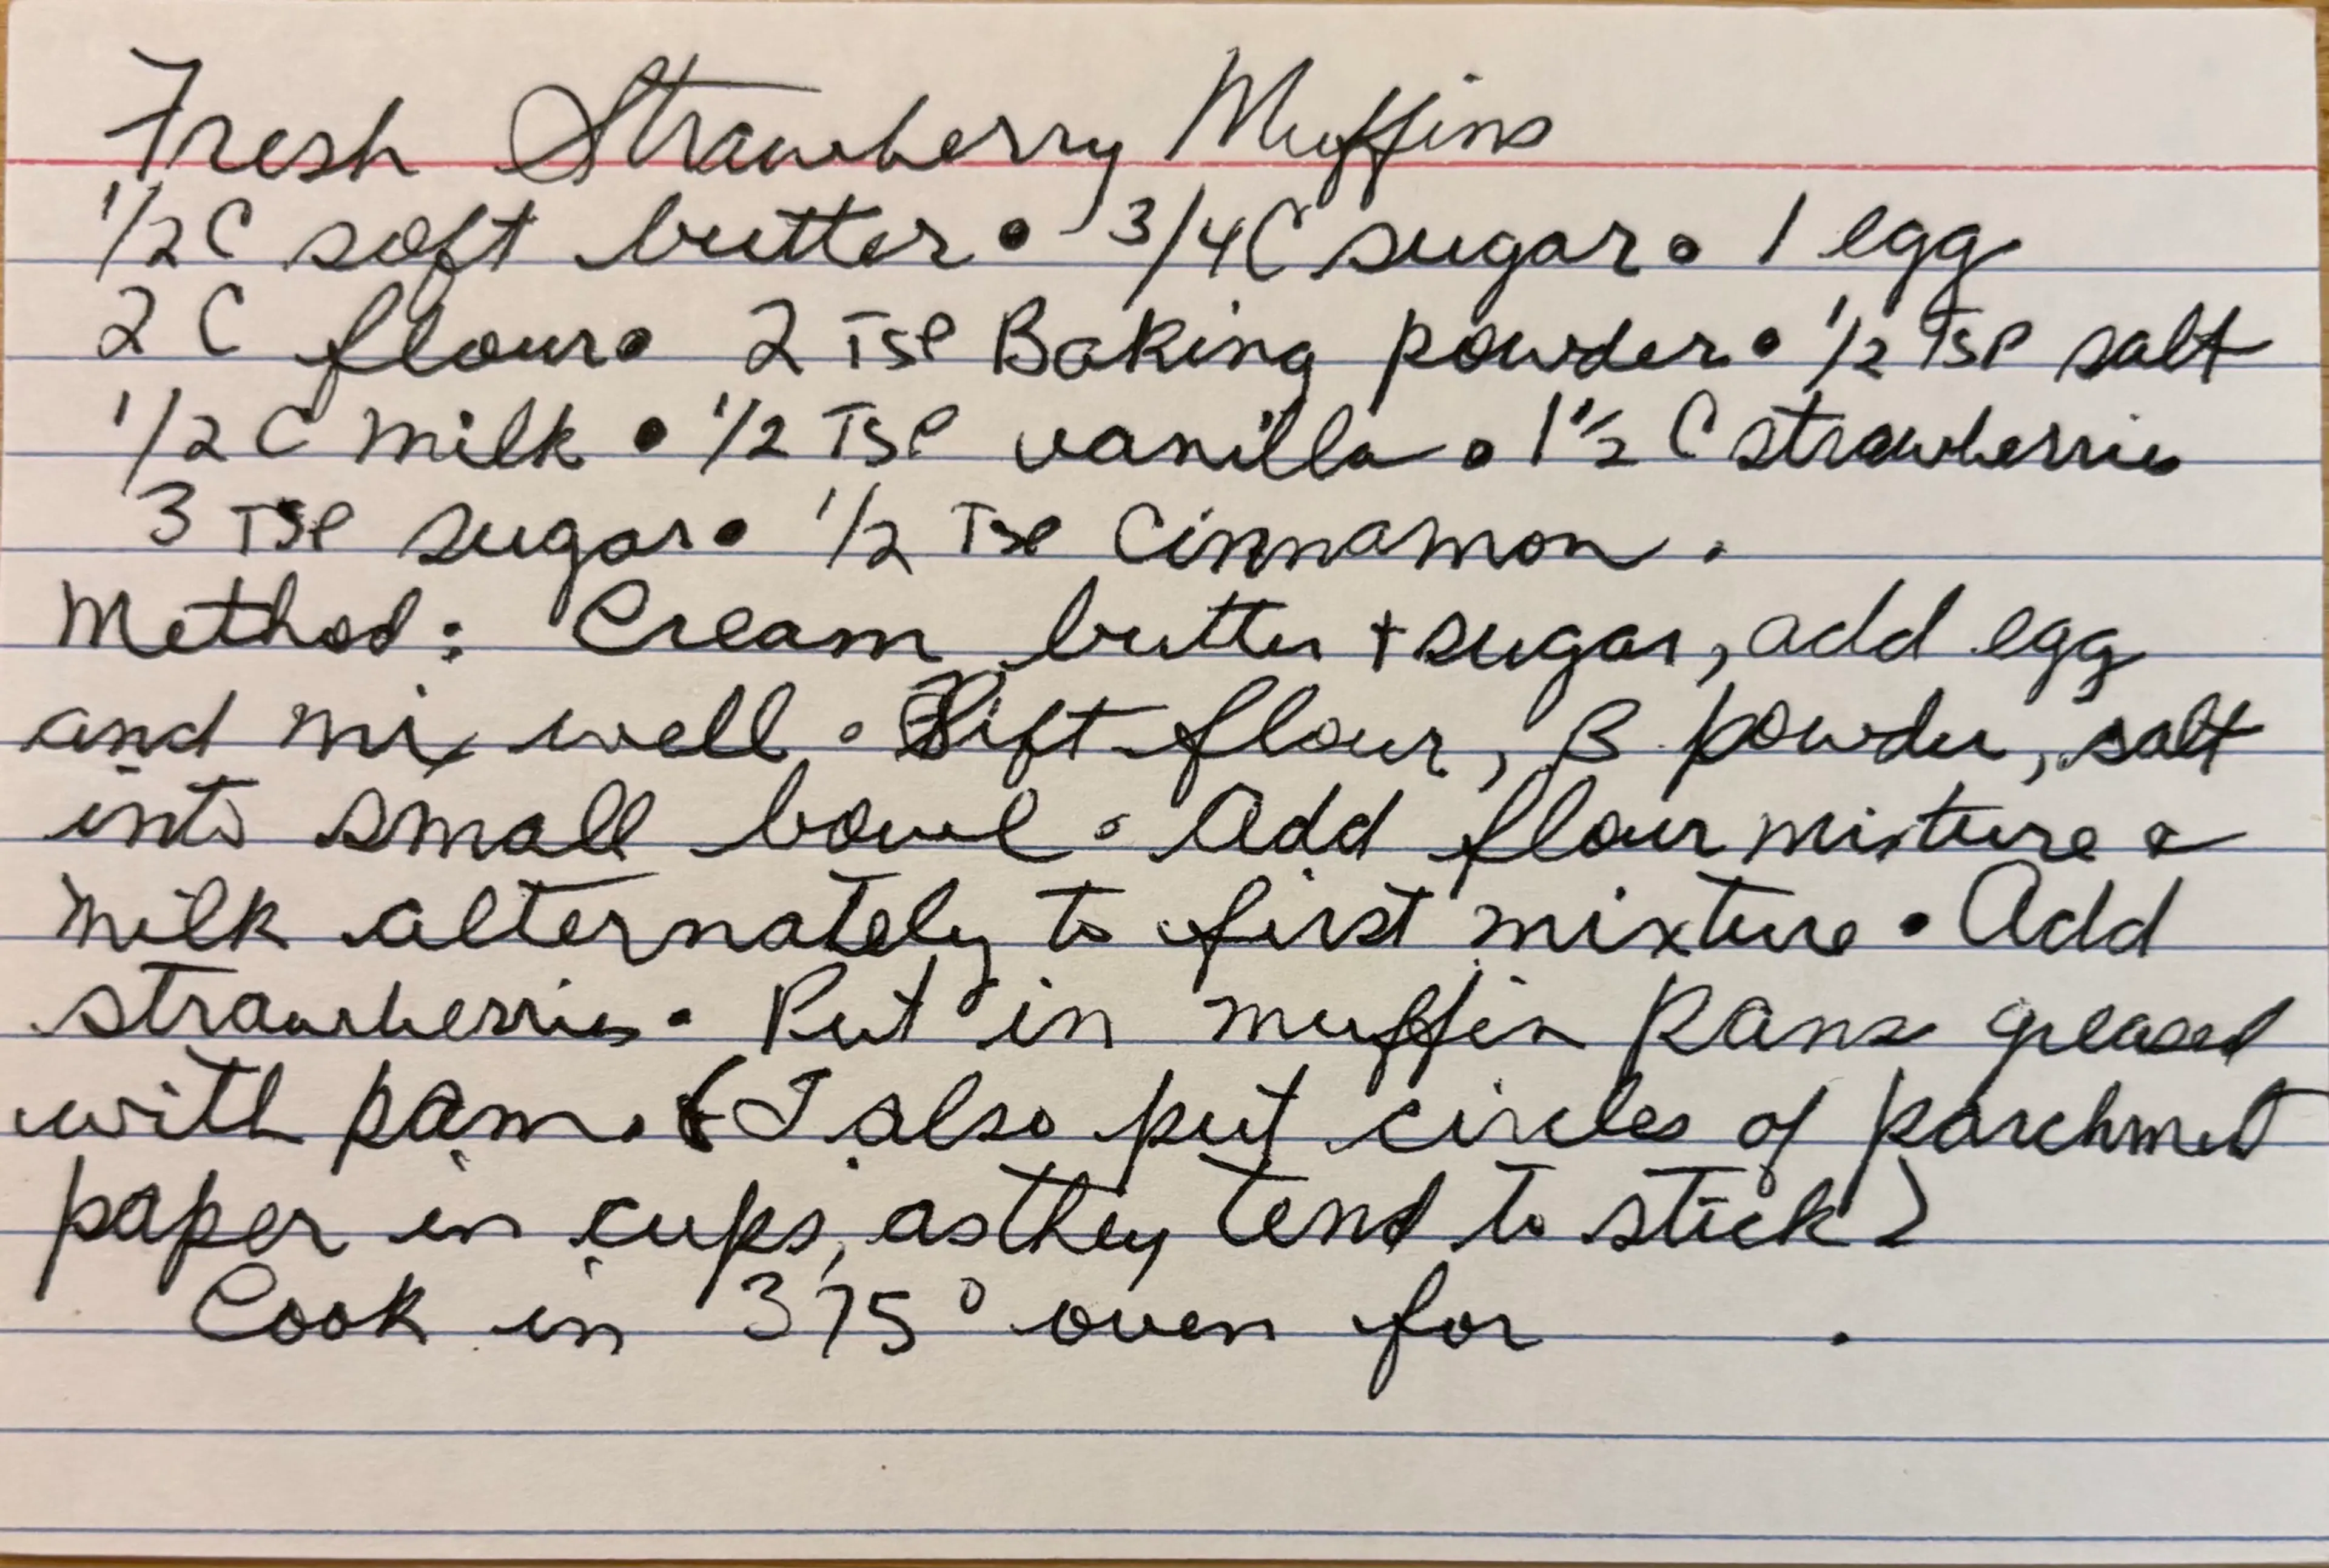 Fresh Strawberry Muffins
1/2 C soft butter • 3/4 C sugar • 1 egg
2 C flour • 2 Tsp Baking powder • 1/2 Tsp salt
1/2 C milk • 1/2 Tsp vanilla • 1 1/2 C strawberries
3 Tsp sugar • 1/2 Tsp Cinnamon.
Method: Cream butter + sugar, add egg
and mix well. Sift flour, B powder, salt
into small bowl. Add flour mixture &
milk alternately to first mixture. Add
strawberries. Put in muffin pans greased
with pam. (I also put circles of parchment
paper in cups, as they tend to stick)
Cook in 375° oven for .